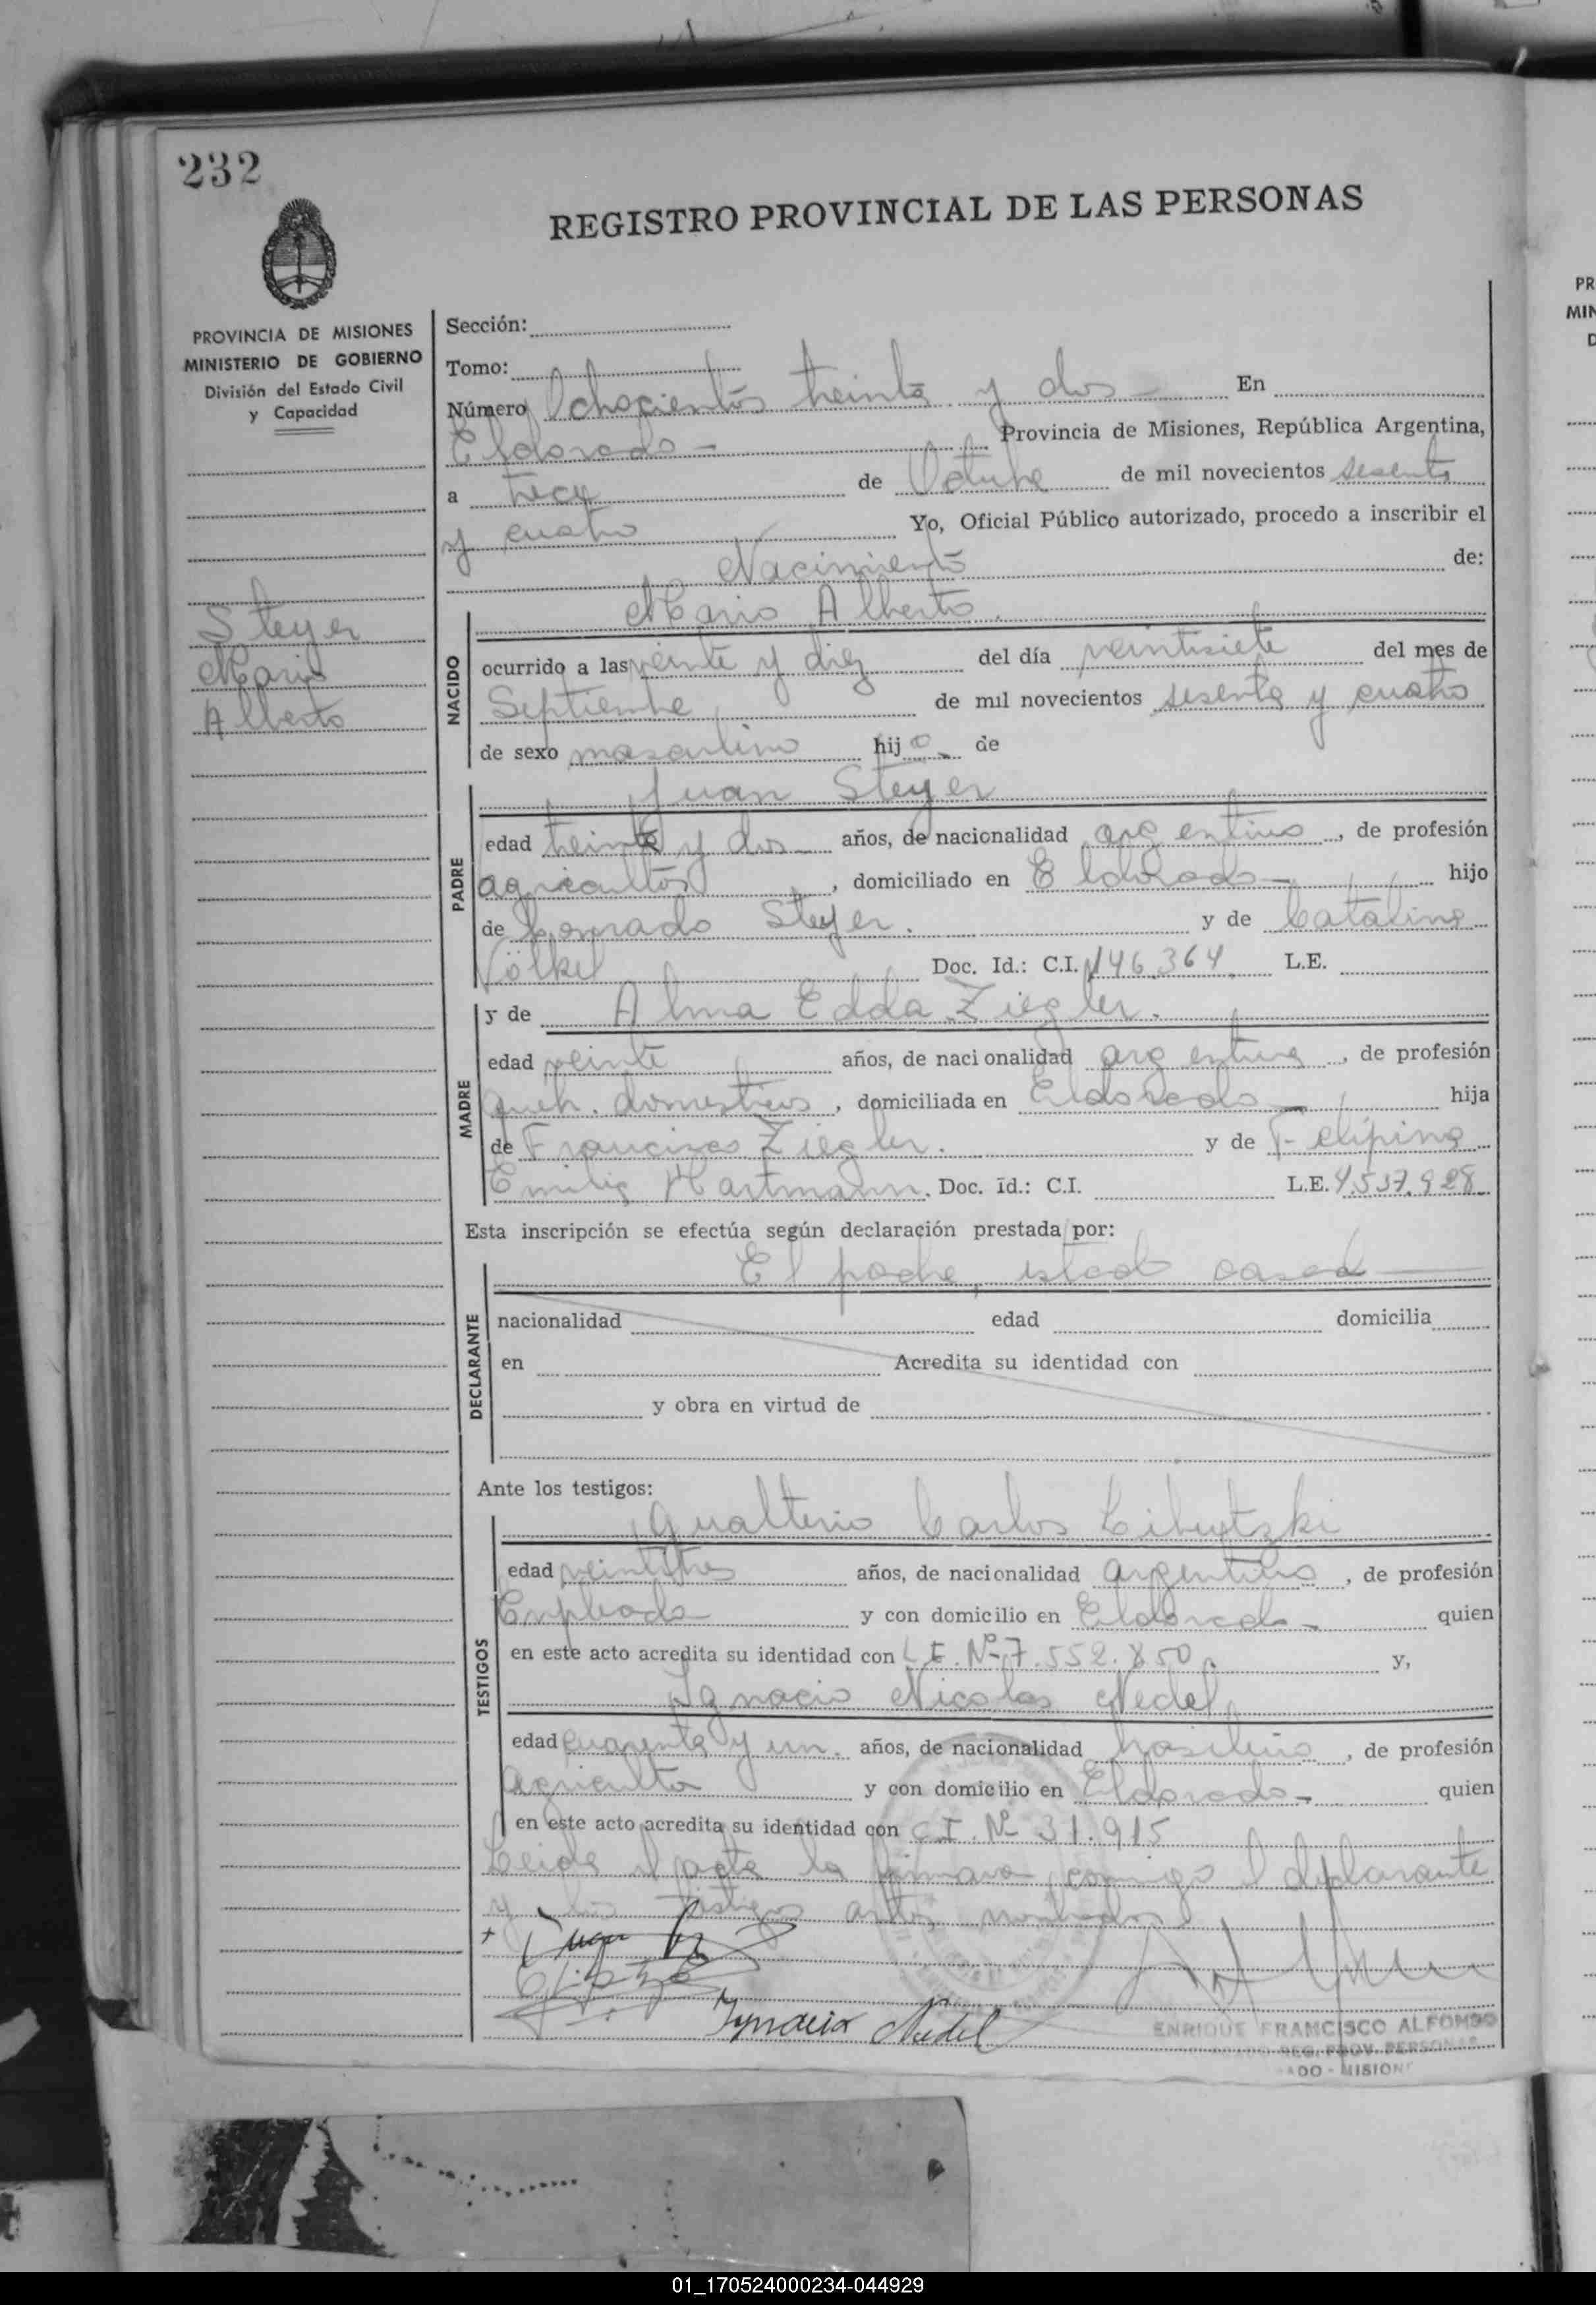 232
REGISTRO PROVINCIAL DE LAS PERSONAS
PROVINCIA DE MISIONES
MINISTERIO DE GOBIERNO
División del Estado Civil
y Capacidad
Steyer
Mario
Alberto
Sección:
Tomo:
Número Ochocientos treinta y dos En
Eldorado Provincia de Misiones, República Argentina,
a trece de Octubre de mil novecientos sesenta
y cuatro Yo, Oficial Público autorizado, procedo a inscribir el
Nacimiento de:
Mario Alberto.
NACIDO
ocurrido a las veinte y diez del día veintisiete del mes de
Septiembre de mil novecientos sesenta y cuatro
de sexo masculino hijo de
Juan Steyer
PADRE
edad treinta y dos años, de nacionalidad argentino, de profesión
agricultor, domiciliado en Eldorado hijo
de Conrado Steyer. y de Catalina
Völkel Doc. Id.: C.I. 146.364. L.E.
y de Alma Edda Ziegler.
MADRE
edad veinte años, de naci onalidad argentina, de profesión
queh. domesticos, domiciliada en Eldorado hija
de Francisco Ziegler. y de
Emilia Hartmann. Doc. id.: C.I. L.E. 4.537.928
Esta inscripción se efectúa según declaración prestada por:
El padre, estado casado
DECLARANTE
nacionalidad edad domicilia
en Acredita su identidad con
y obra en virtud de
Ante los testigos:
Gualterio Carlos
TESTIGOS
edad veintitres años, de nacionalidad argentino, de profesión
Empleado y con domicilio en Eldorado quien
en este acto acredita su identidad con L.E. Nº 7.552.850. y,
Ignacio Nicolas Nedel
edad cuarenta y un. años, de nacionalidad brasileño, de profesión
agricultor y con domicilio en Eldorado quien
en este acto acredita su identidad con C.I. Nº 31.915
Leida el acta la firmaron conmigo el declarante
y los testigos antes nombrados
Ignacio Nedel
ENRIQUE FRANCISCO ALFONSO
REG. PROV. PERSONAS
ADO - MISION
PR
MIN
D
01_170524000234-044929